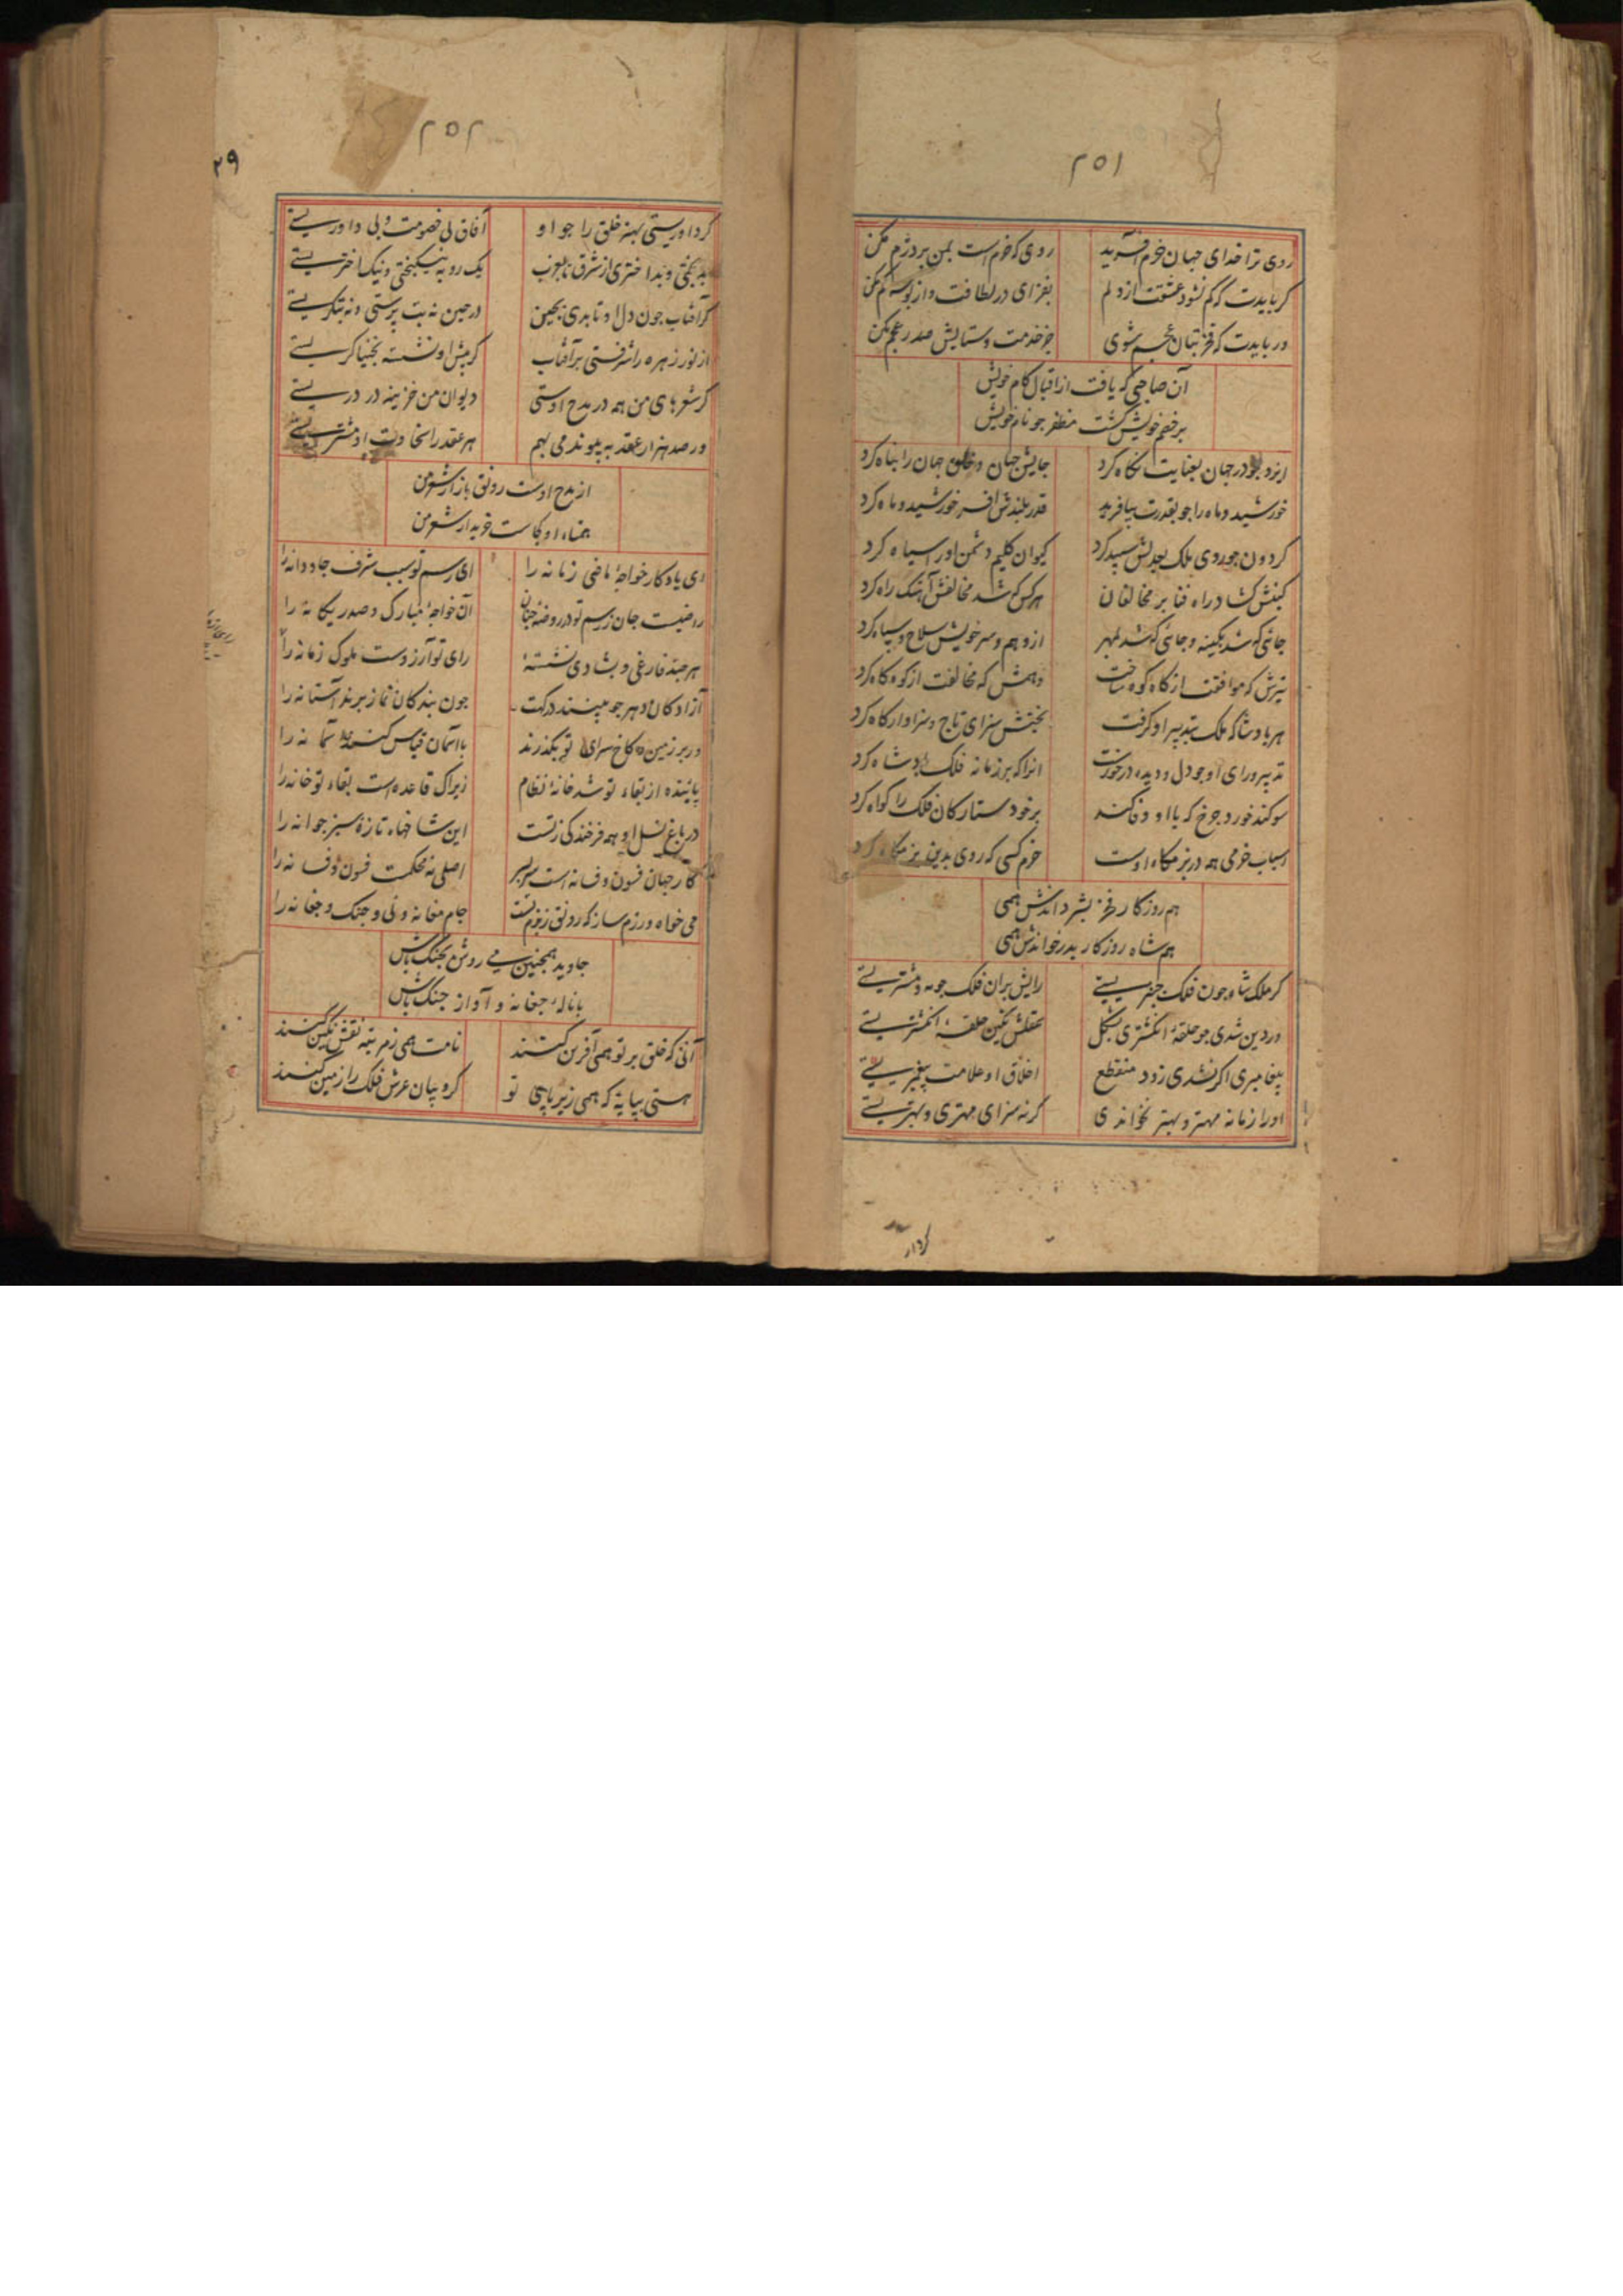 ۲۵۱
روی ترا خدای جهان خرم آفرید روی که خرم است بمن بر دژم مکن
کر بایدت که کم نشود عشقت از دلم بفزای در لطافت و از بوسه کم مکن
ور بایدت که فخر بتان عجم شوی جز خدمت و ستایش صدر عجم مکن
آن صاحبی که یافت از اقبال کام خویش
بر خصم خویش گشت مظفر جو نام خویش
ایزد جو در جهان بعنایت نکاه کرد جایش جهان و خلق جهان را پناه کرد
خورشید و ماه را جو بقدرت بیافرید قدر بلندش افسر خورشید و ماه کرد
کردون جو روی ملک بعدلش سپید کرد کیوان کلیم دشمن او را سیاه کرد
کینش کشاد راه فنا بر مخالفان هر کس که شد مخالفش آهنک راه کرد
جائی که شد بکینه و جائی که شد بمهر از وهم و سر خویش سلاح و سپاه کرد
تیرش که موافقت از کاه کوه ساخت وهمش که مخالفت از کوه کاه کرد
هر پادشا که ملک بتدبیر او کرفت بختش سزای تاج و سزاوار کاه کرد
تدبیر و رای او جو دل و دیده درخورست انرا که بر زمانه فلک پادشاه کرد
سوکند خورد جرخ که با او وفا کند بر خود ستارکان فلک را کواه کرد
اسباب خرمی همه در بزمکاه اوست خرم کسی که روی بدین بزمکاه کرد
هم روزکار فخر بشر داندش همی
هم شاه روزکار پدر خواندش همی
کر ملک شاه جون فلک جنبریستی رایش بران فلک جو مه و مشتریستی
ور دین شدی جو حلقهٔ انکشتری بشکل عقلش نکین حلقهٔ انکشتریستی
پیغامبری اکر نشدی زود منقطع اخلاق او علامت پیغمبریستی
اورا زمانه مهتر و بهتر نخواندی کر نه سزای مهتری و بهتریستی
کردار
۲۵۲
۲۹
کر داوریستی بهتر خلق را جو او آفاق بی خصومت و بی داوریستی
بدبختی و بداختری از شرق تا بغرب یک رویه نیکبختی و نیک اختریستی
کر آفتاب جون دل او تابدی بجین در جین نه بت پرستی و نه بتکریستی
از نور زهره را شرفستی بر آفتاب کر پیش او نشسته بخنیاکریستی
کر شعرهای من همه در مدح اوستی دیوان من خزینه در دریستی
ور صد هزار عقد به پیوندمی بهم هر عقد را سخاوت او مشتریستی
از مدح اوست رونق بازار شعر من
همتاء او کجاست خریدار شعر من
ای یادکار خواجهٔ ماضی زمانه را ای رسم تو سبب شرف جاودانه را
راضیست جان ز رسم تو در روضهٔ جنان آن خواجهٔ مبارک و صدر یکانه را
هر جند فارغی و بشادی نشستهٔ رای تو آرزوست ملوک زمانه را
آزادکان دهر جو بینند درکهت جون بندکان نماز برند آستانه را
ور بر زمین کاخ سرای تو بکذرند با آسمان قیاس کنند آستانه را
پاینده از بقاء تو شد خانهٔ نظام زیراک قاعده است بقاء تو خانه را
در باغ نسل او همه فرخندکی زتست این شاخهاء تازهٔ سبز جوانه را
کار جهان فسون و فسانه است سربسر اصلی نه محکمست فسون و فسانه را
می خواه و رزم ساز که رونق ز بزم تست جام مغانه و نی و جنک و جغانه را
جاوید همجنین می روشن بجنک باش
با نالهٔ جغانه و آواز جنک باش
آنی که خلق بر تو همی آفرین کنند نامت همی ز مرتبه نقش نکین کنند
هستی بپایهٔ که همی زیر پای تو کروبیان عرش فلک را زمین کنند